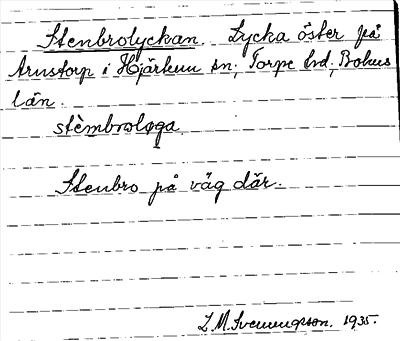 Stenbrolyckan. Lycka öster på
Arnstorp i Hjärtum sn; Torpe hd; Bohus
län.
stèmbroløga
Stenbro på väg där.
L M Svenungsson. 1935.